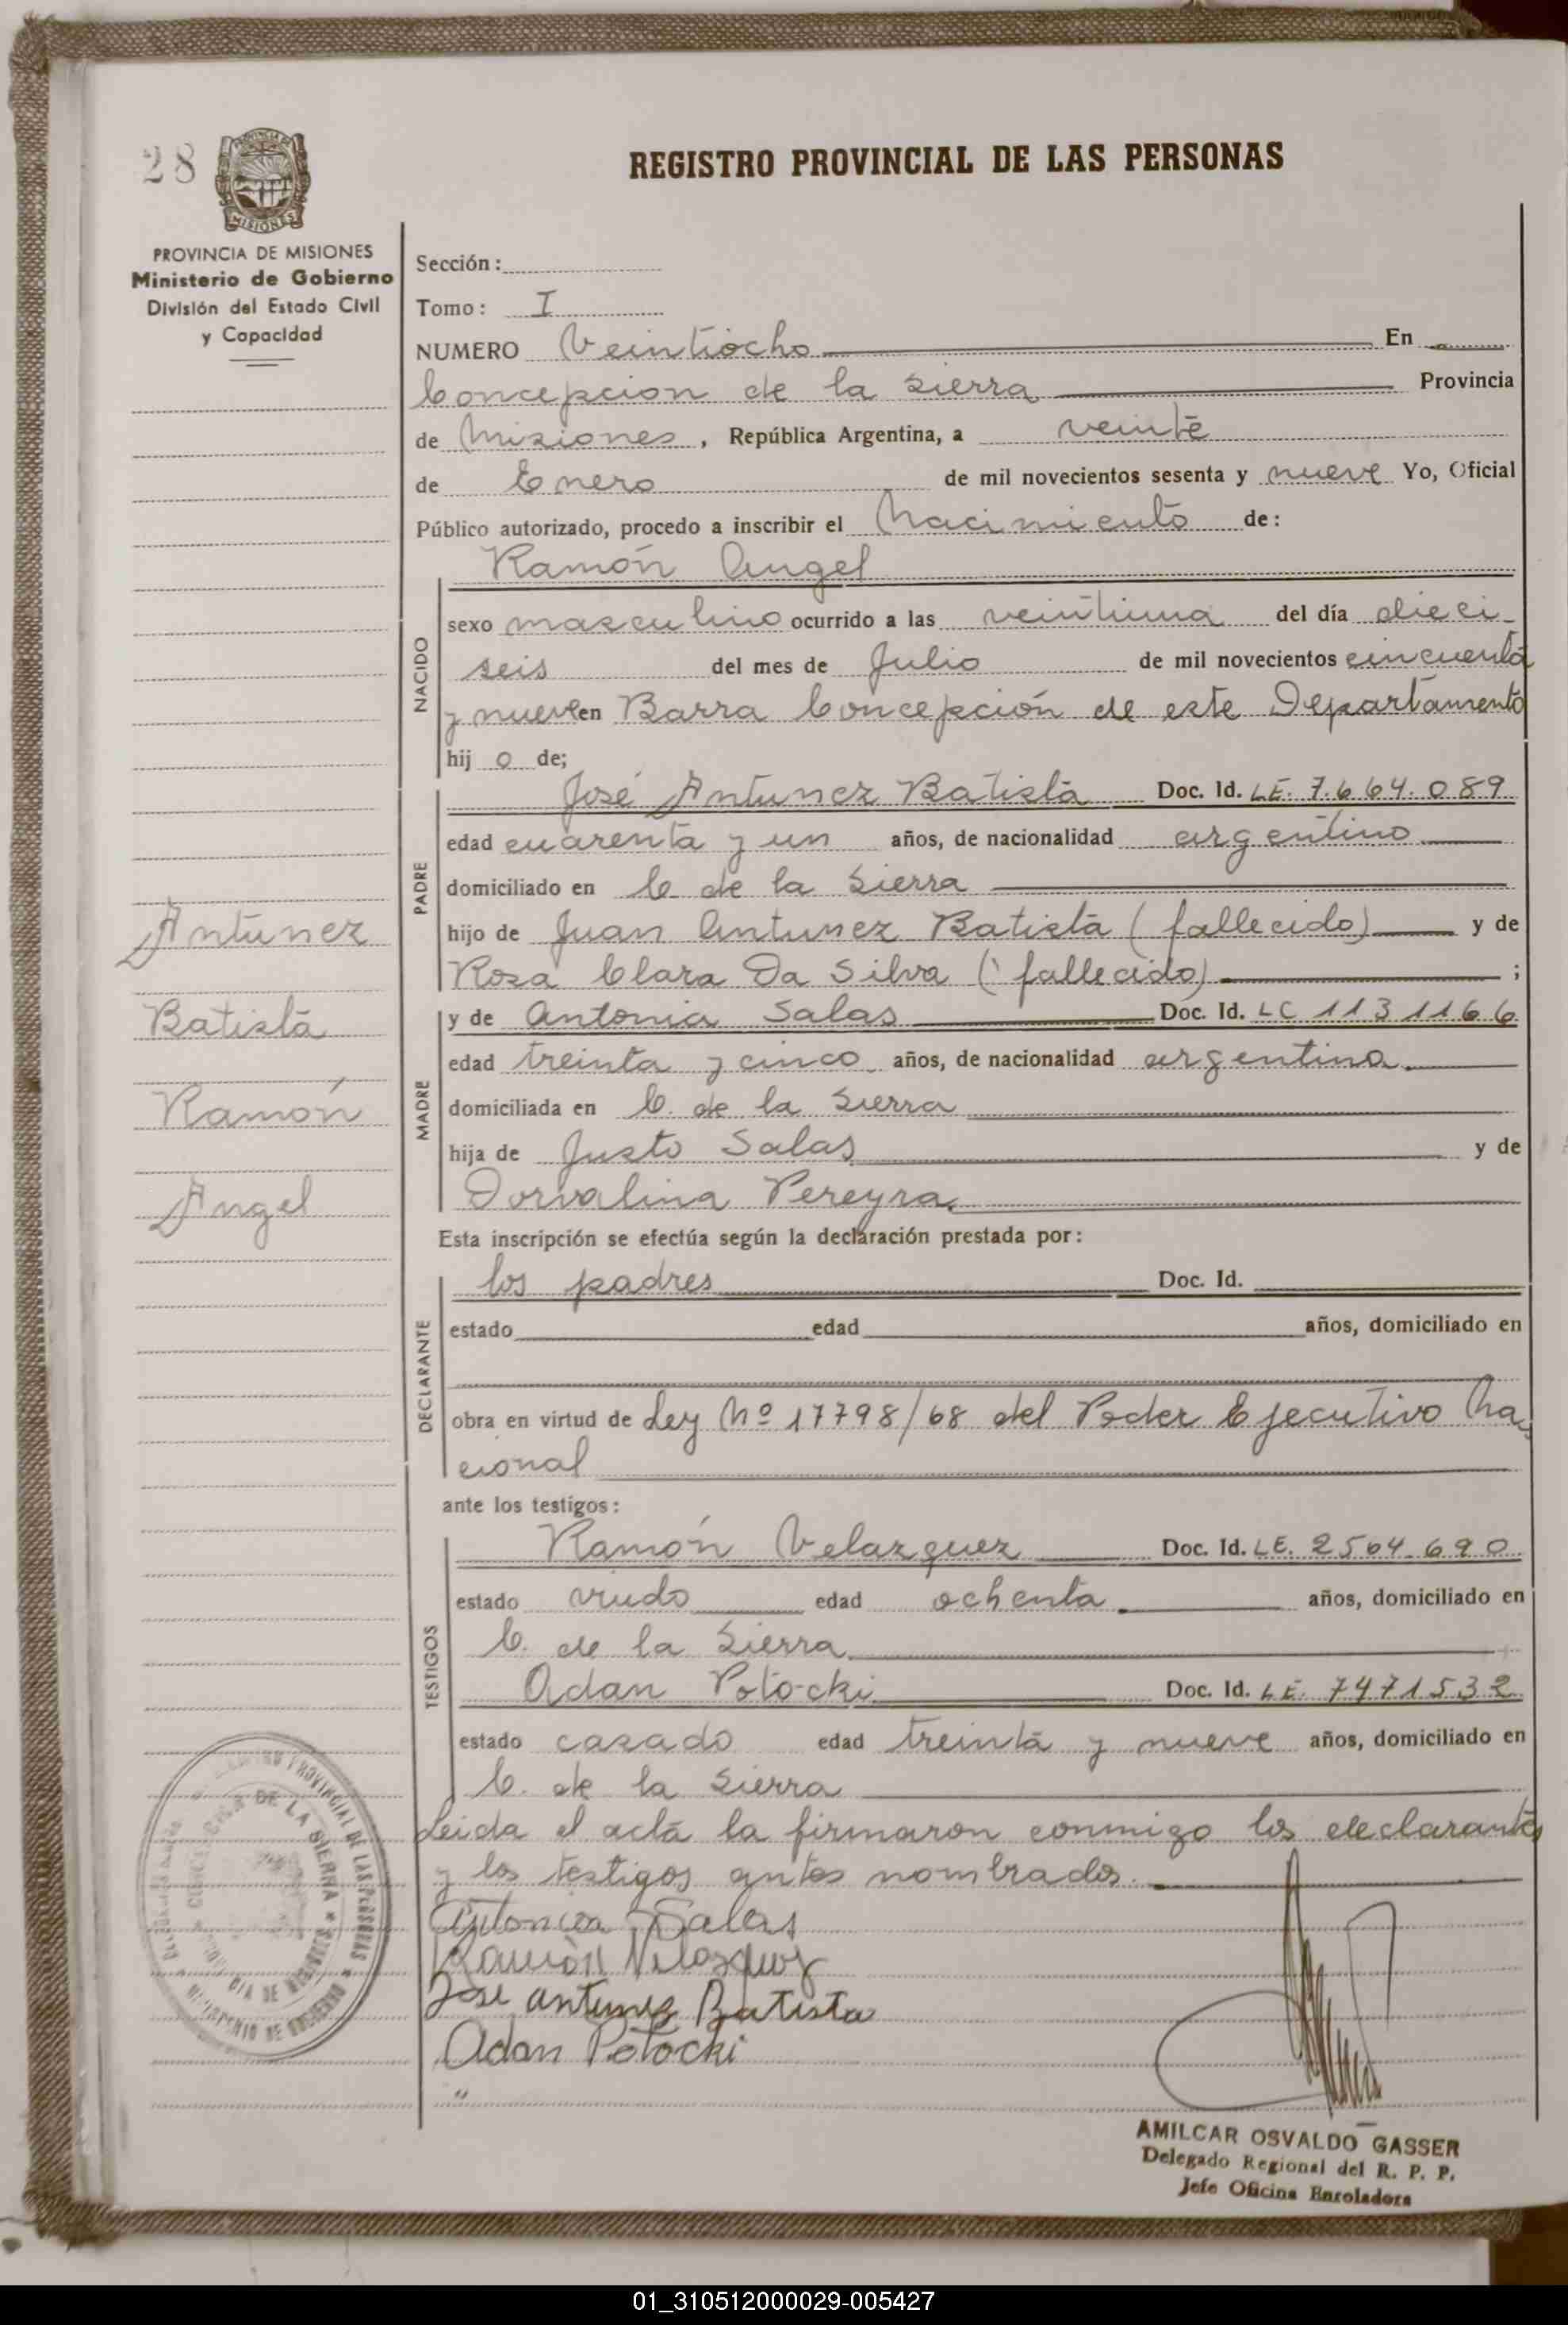 28
PROVINCIA DE MISIONES
Ministerio de Gobierno
División del Estado Civil
y Capacidad
REGISTRO PROVINCIAL DE LAS PERSONAS
Sección:
Tomo: I
NUMERO Veintiocho En
Concepcion de la Sierra Provincia
de Misiones, República Argentina, a veinte
de Enero de mil novecientos sesenta y nueve Yo, Oficial
Público autorizado, procedo a inscribir el Nacimiento de:
Ramón Angel
NACIDO
sexo masculino ocurrido a las veintiuna del día dieci-
seis del mes de Julio de mil novecientos cincuenta
y nueve en Barra Concepción de este Departamento
hij o de;
PADRE
José Antunez Batista Doc. Id. LE. 7.664.089
edad cuarenta y un años, de nacionalidad argentino
domiciliado en C de la Sierra
hijo de Juan Antunez Batista (fallecido) y de
Rosa Clara Da Silva (fallecido) ;
MADRE
y de Antonia Salas Doc. Id. LC 1131166
edad treinta y cinco años, de nacionalidad argentina.
domiciliada en C. de la Sierra
hija de Justo Salas y de
Dorvalina Pereyra.
Esta inscripción se efectúa según la declaración prestada por:
DECLARANTE
los padres Doc. Id.
estado edad años, domiciliado en
obra en virtud de Ley Nº 17798/68 del Poder Ejecutivo Na
cional
ante los testigos:
TESTIGOS
Ramón Velazquez Doc. Id. LE. 2564.690
estado viudo edad ochenta años, domiciliado en
C. de la Sierra
Adan Potocki Doc. Id. LE. 7471532
estado casado edad treinta y nueve años, domiciliado en
C. de la Sierra
Leida el acta la firmaron conmigo los declarantes
y los testigos antes nombrados.
Antonia Salas
Ramón Velasquez
Jose antunez Batista
Adan Potocki
Antunez
Batista
Ramón
Angel
AMILCAR OSVALDO GASSER
Delegado Regional del R. P. P.
Jefe Oficina Enroladora
01_310512000029-005427